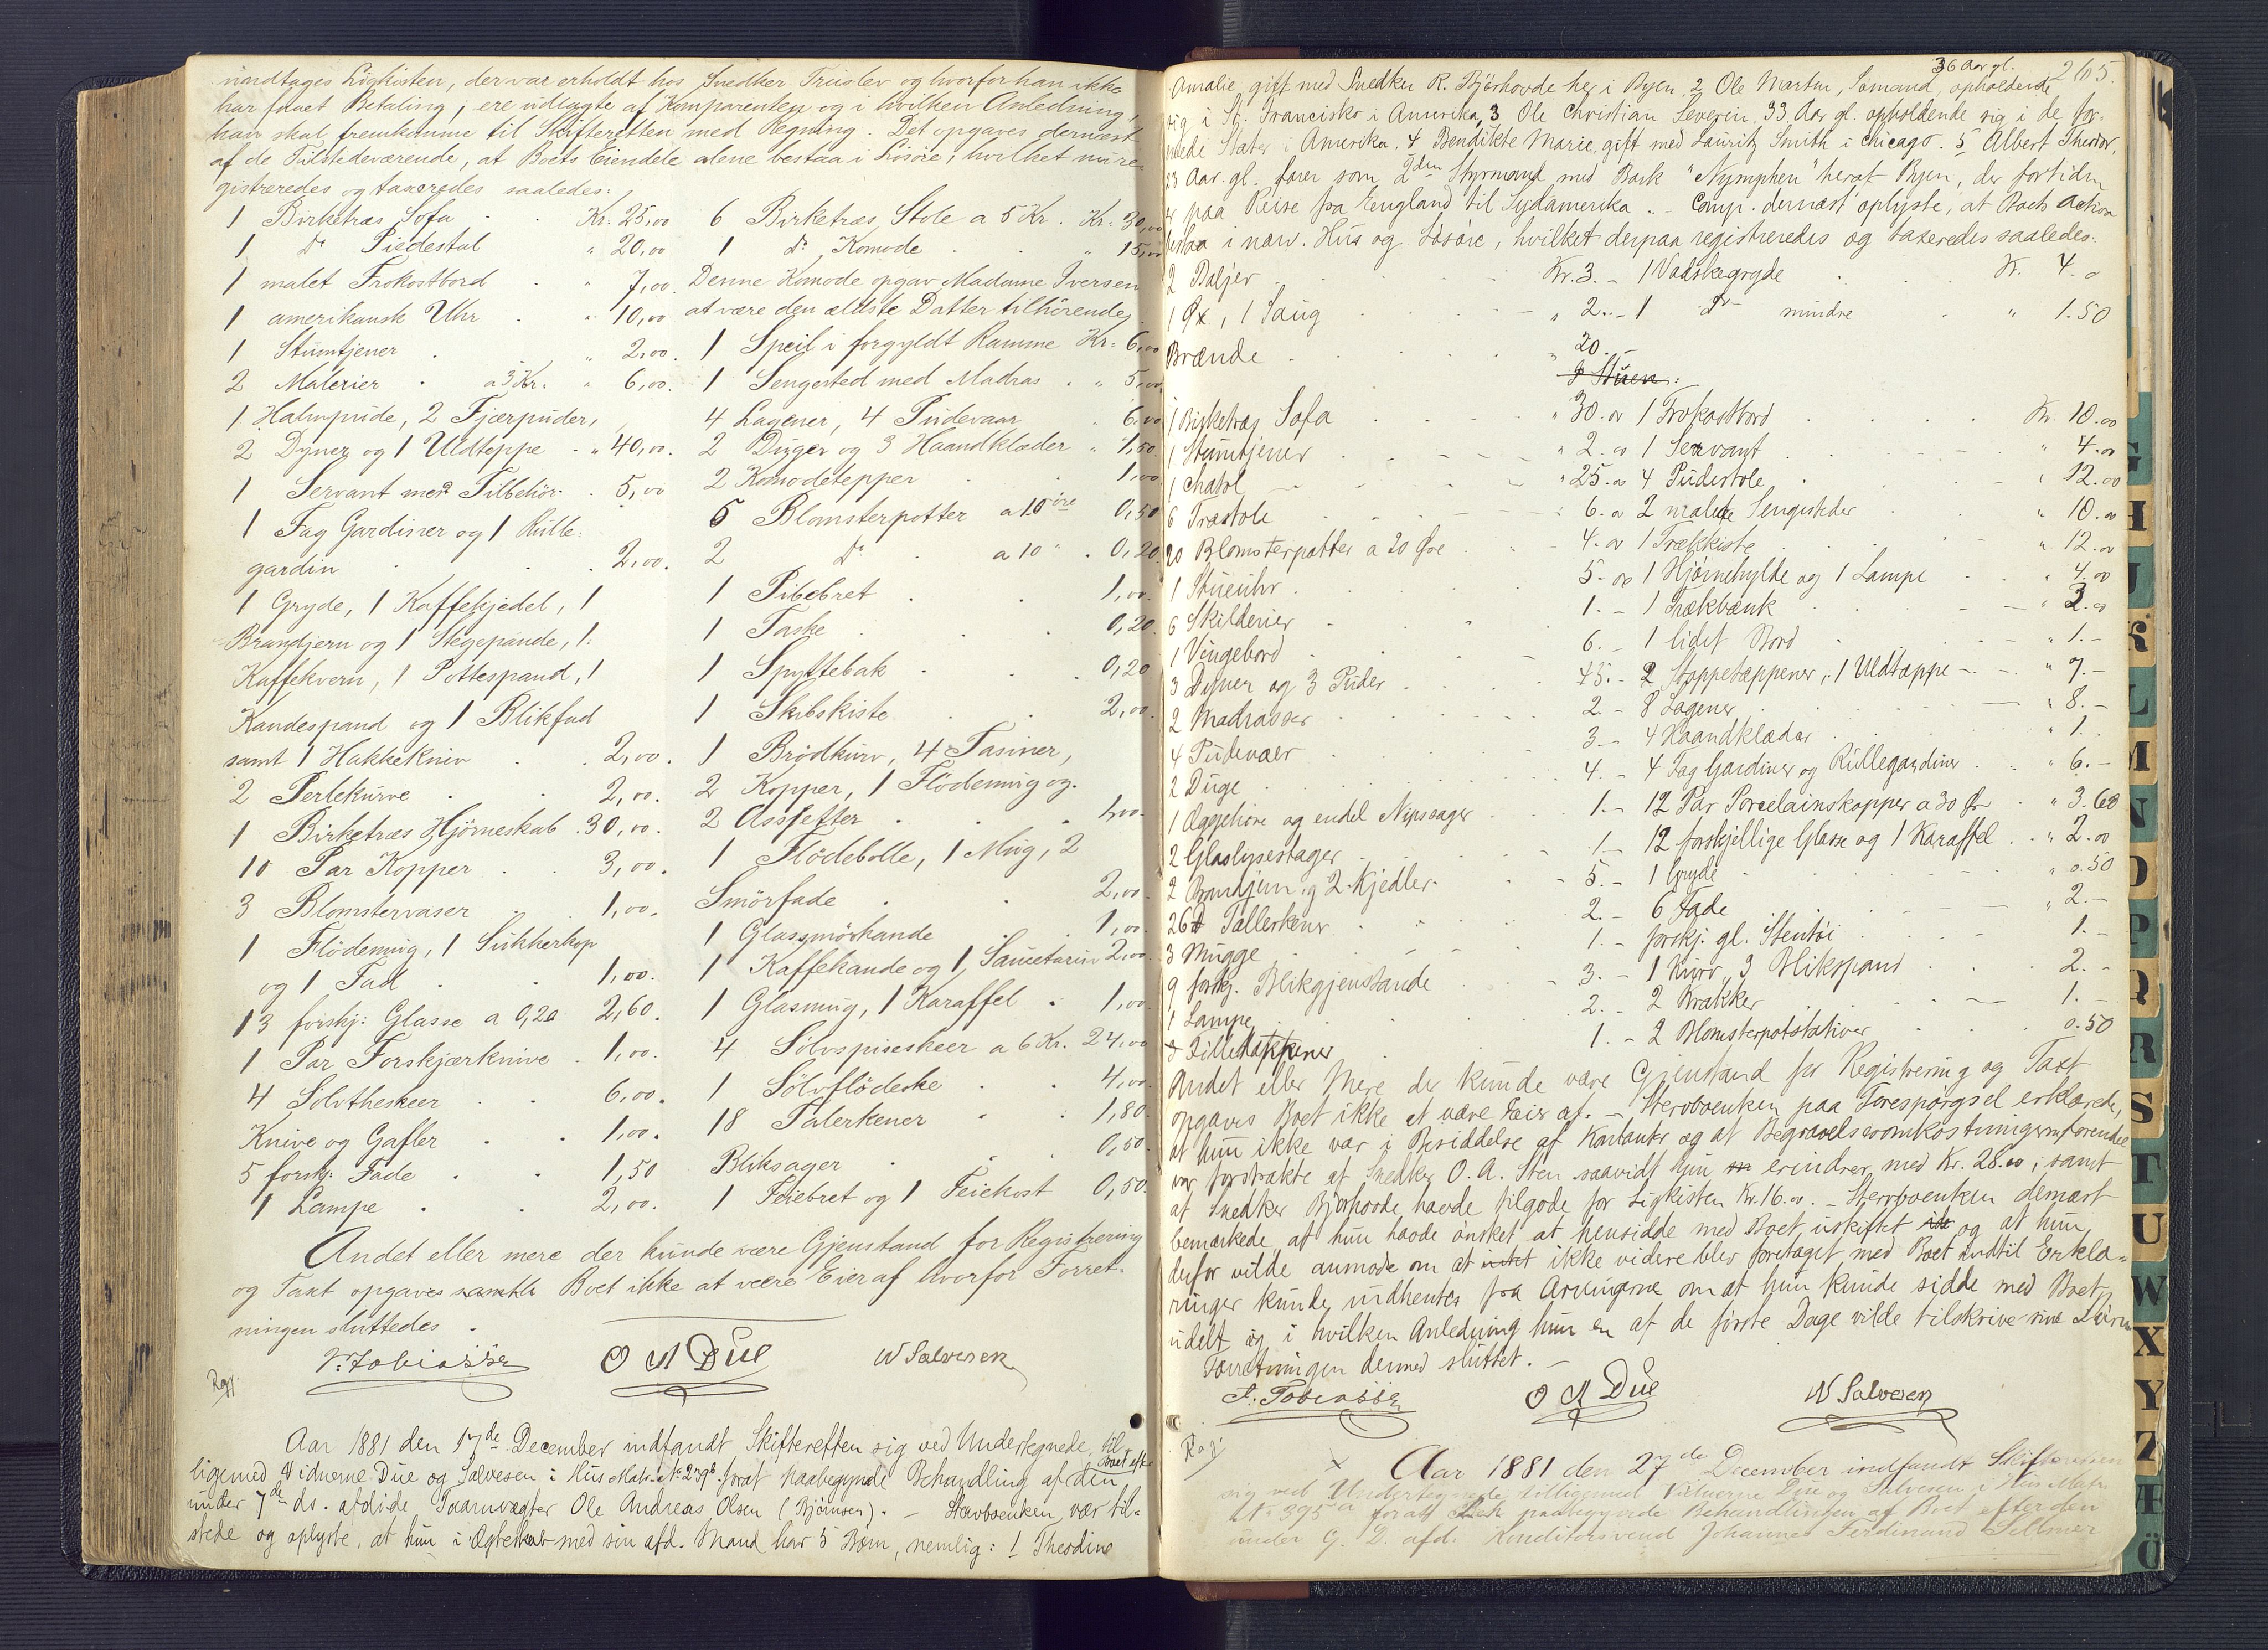 undtages Ligkisten, der var erholdt hos Snedker Truslev og hvorfor han ikke
har faaet Betaling, ere udlagte af Komparenten og i hvilken Anledning,
han skal fremkomme til Skifteretten med Regning. Det opgaves dernæst
af de Tilstedeværende, at Boets Eiendele alene bestaa i Lösöre, hvilket nu re-
gistreredes og taxeredes saaledes:
1 Birketræs Sofa Kr. 25,00 6 Birketræs Stole a 5 Kr. Kr. 30,00
1 do Piedestal " 20,00 1 do Komode " 15,00
1 malet Frokostbord " 7,00. Denne Komode opgav Madame Iversen
1 amerikansk Uhr " 10,00 at være den ældste Datter tilhörende
1 Stumtjener " 2,00. 1 Speil i forgyldt Ramme Kr. 6,00
2 Malerier a 3 Kr. " 6,00. 1 Sengested med Madras " 5,00
1 Halmpude, 2 Fjærpuder, 4 Lagener, 4 Pudevaar " 6,00
2 Dyner og 1 Uldteppe " 40,00. 2 Duger og 3 Haandklæder " 1,50
1 Servant med Tilbehör 5,00 2 Komodetepper 1,00
1 Fag Gardiner og 1 Rulle- 5 Blomsterpotter a 10 öre 0,50
gardin 2,00. 2 do a 10 " 0,20
1 Gryde, 1 Kaffekjedel, 1 1 Pibebret 1,00.
Brandjern og 1 Stegepande, 1 1 Taske 0,20.
Kaffekvern, 1 Pottespand, 1 1 Spyttebak 0,20
Kandespand og 1 Blikfad 1 Skibskiste 2,00.
samt 1 Hakkekniv 2,00. 1 Brödkurv, 4 Tasiner,
2 Perlekurve 2,00. 2 Kopper, 1 Flödemug og
1 Birketræs Hjörneskab 30,00. 2 Assietter 1,00.
10 Par Kopper 3,00. 1 Flödebolle, 1 Mug, 2
3 Blomstervaser 1,00. Smörfade 2,00.
1 Flödemug, 1 Sukkerkop 1 Glassmörkande 1,00.
og 1 Fad 1,00. 1 Kaffekande og 1 Saucetarin 2,00.
13 forskj: Glasse a 0,20 2,60. 1 Glasmug, 1 Karaffel 1,00
1 Par Forskjærknive 1,00. 4 Sölvspiseskeer a 6 Kr. 24,00
4 Solvtheskeer 6,00. 1 Sölvflödeske 4,00.
Knive og Gafler 1,00. 18 Talerkener 1,80.
5 forskj: Fade 1,50 Bliksager 0,50.
1 Lampe 2,00. 1 Feiebret og 1 Feiekost 0,50.
Andet eller mere der kunde være Gjenstand for Registrering
og Taxt opgaves Boet ikke at være Eier af hvorfor Forret-
ningen sluttedes.
V. Tobiassen O A Due N Salvesen
Aar 1881 den 17de December indfandt Skifteretten sig ved Undertegnede til
ligemed Vidnerne Due og Salvesen i Hus Matr. No 239b forat paabegynde Behandling af Boet efter den
under 7de ds. afdöde Taarnvægter Ole Andreas Olsen (Bjönnsen). – Stervboenken var til-
stede og oplyste, at hun i Ægteskab med sin afd. Mand har 5 Börn, nemlig: 1 Theodine
265.
Amalie gift med Snedker R. Björhovde her i Byen, 2 Ole Martin, Sömand, 36 Aar gl. opholdende
sig i St. Francisko i Amerika, 3 Ole Christian Severin, 33 Aar gl. opholdende sig i de for-
enede Stater i Amerika, 4 Bendikte Marie, gift med Lauritz Smith i Chicago. 5 Albert Theodor,
23 Aar gl. farer som 2den Styrmand med Bark "Nymphen" heraf Byen, der fortiden
er paa Reise fra England til Sydamerika. – Comp. dernæst oplyste, at Boets Activa
bestaa i nærv. Hus og Lösöre, hvilket derpaa registreredes og taxeredes saaledes:
2 Baljer Kr. 3. – 1 Vadskegryde Kr. 4.00
1 Öx, 1 Saug " 2. – 1 do mindre " 1.50
Brænde " 20. –
I Stuen:
1 Birketræs Sofa " 30.00 1 Frokostbord Kr. 10.00
1 Stumtjener " 2.00 1 Servant " 4.00
1 Chatol " 25.00 4 Pudestole " 12.00
6 Træstole " 6.00 2 malede Sengesteder " 10.00
20 Blomsterpotter a 20 Öre 4.00 1 Trækkiste " 12.00
1 Stueuhr 5.00 1 Hjörnehylde og 1 Lampe " 4.00
6 Skilderier 1. – 1 Trækbænk " 3.00
1 Vingebord 6. – 1 lidet Bord " 1. –
3 Dyner og 3 Puder 45. – 2 Stoppetæppener, 1 Uldtæppe " 7. –
2 Madrasser 2. – 8 Lagener " 8. –
4 Pudevaer 3. – 4 Haandklæder " 1. –
2 Duge 4. – 4 Fag Gardiner og Rullegardiner " 6. –
1 Æggehöne og endel Nipssager 1. – 12 Par Porcelainskopper a 30 Öre " 3.60
2 Glaslysestager 1. – 12 forskjellige Glasse og 1 Karaffel " 2.00
2 Brandjern og 2 Kjedler 5. – 1 Gryde " 0.50
26 Tallerkener 2. – 6 Fade " 2. –
3 Mugge 1. – forskj. gl. Stentöi 1. –
9 forskj. Blikgjenstande 3. – 1 Kurv, 3 Blikspand 2. –
1 Lampe 2. – 2 Krakker 1. –
Filletæppener 1. – 2 Blomsterpotstativer 0.50
Andet eller Mere der kunde være Gjenstand for Registrering og Taxt
opgaves Boet ikke at være Eier af. – Stervboenken paa Forespörgsel erklærede,
at hun ikke var i Besiddelse af Kontanter og at Begravelsesomkostningerne forende
var forstrakte af Snedker O. A. Sten saavidt hun erindrer med Kr. 28.00, samt
at Snedker Björhovde havde tilgode for Ligkisten Kr. 16.00. – Stervboenken dernæst
bemærkede, at hun havde önsket at hensidde med Boet uskiftet og at hun
derfor vilde anmode om at intet ikke videre blev foretaget med Boet indtil Erklæ-
ringer kunde indhentes fra Arvingerne om at hun kunde sidde med Boet
udelt og i hvilken Anledning hun en af de förste Dage vilde tilskrive sine Börn
Forretningen dermed sluttet. –
F. Tobiassen O A Due N Salvesen
Aar 1881 den 27de December indfandt Skifteretten
sig ved Undertegnede tilligemed Vidnerne Due og Salvesen i Hus Matr.
No 395a for at paabegynde Behandlingen af Boet efter den
under 9. D. afd. Konditorsvend Johannes Ferdinand Sellmer
G
H
I
J
K
L
M
N
O
P
Q
R
S
T
U
W
X
Y
Z
Æ
Ö